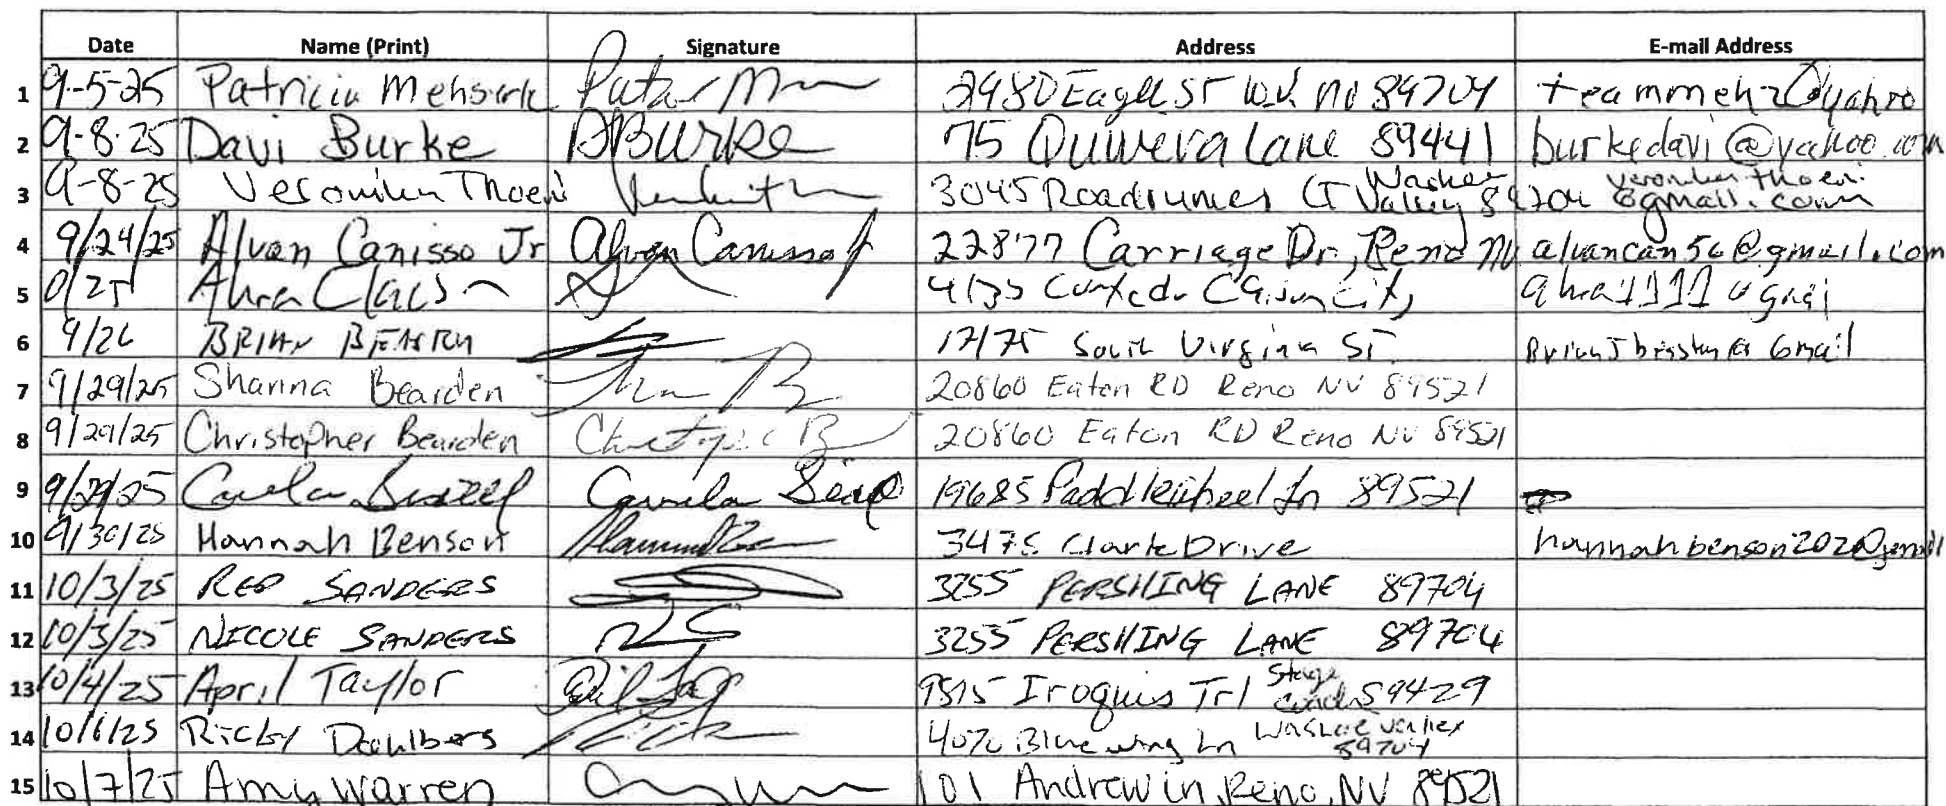 Date Name (Print) Signature Address E-mail Address
1 9-5-25 Patricia 2980 Eagle ST W.V. NV 89704 teammehz@yahoo
2 9-8-25 Davi Burke DBurke 75 Quivera Lane 89441 burkedavi@yahoo.com
3 9-8-25 Thoen 3045 Roadrunner CT Washoe Valley 89704 thoen @gmail.com
4 9/24/25 Alvan Canisso Jr Alvan Canisso Jr 22877 Carriage Dr, Reno NV alvancan56@gmail.com
5 Carson City
6 9/26 BRIAN 17175 South Virginia ST. Gmail
7 9/29/25 Shanna Bearden 20860 Eaton RD Reno NV 89521
8 9/29/25 Christopher Bearden 20860 Eaton RD Reno NV 89521
9 9/29/25 19685 Paddlewheel Ln 89521
10 9/30/25 Hannah Benson 3475 Clark Drive hannahbenson2020@gmail
11 10/3/25 SANDERS 3255 PERSHING LANE 89704
12 10/3/25 NICOLE SANDERS 3255 PERSHING LANE 89704
13 10/4/25 April Taylor Iroquis Trl Stage coach 89429
14 10/6/25 Ricky 4070 Bluewing Ln Washoe Valley 89704
15 10/7/25 Amy Warren 101 Andrew ln, Reno, NV 89521